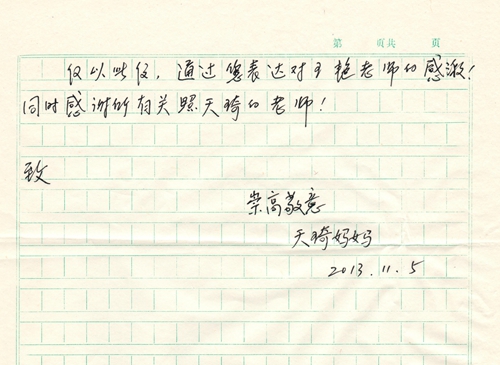 第 页共 页
仅以此仅，通过您表达对王艳老师的感激！
同时感谢所有关照天琦的老师！
致
崇高敬意
天琦妈妈
2013.11.5